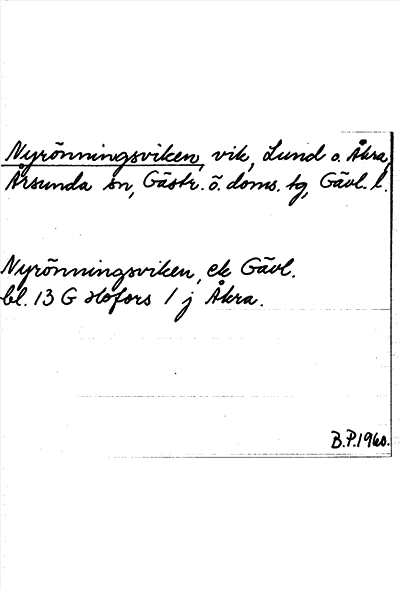 Nyrönningsviken, vik, Lund o. Åkra,
Årsunda sn, Gästr. ö. doms. tg, Gävl. l.
Nyrönningsviken, ek Gävl.
bl. 13 G Hofors 1 j Åkra.
B.P. 1960.